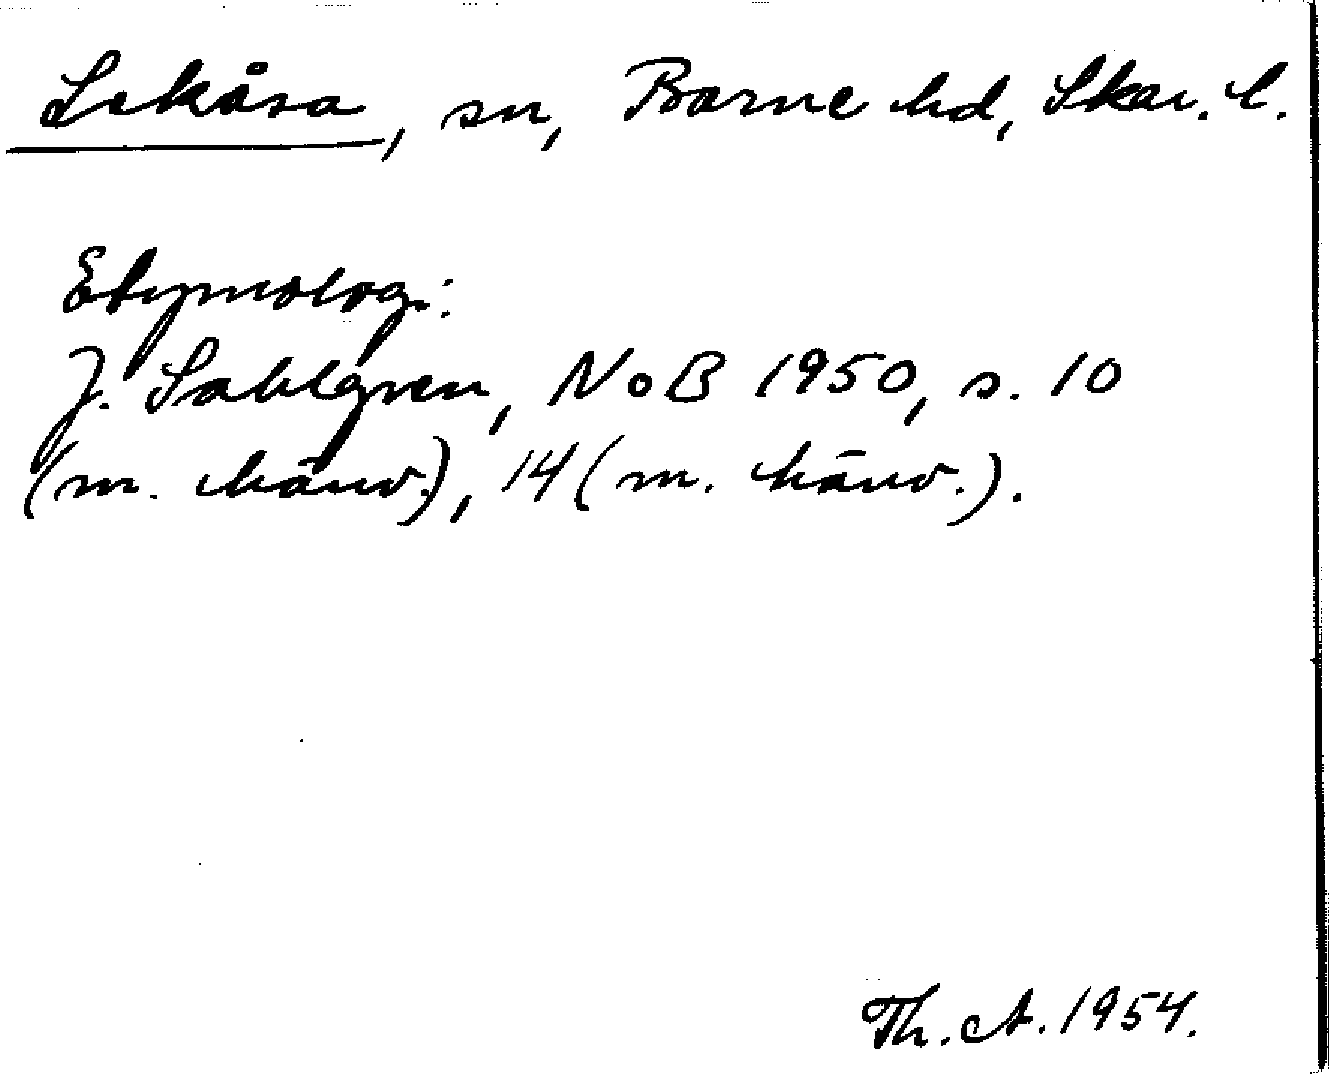 Lekåsa, sn, Barne hd, Skar. l.
Etymologi:
J. Sahlgren, NoB 1950, s. 10
(m. hänv.), 14 (m. hänv.).
Th. A. 1954.